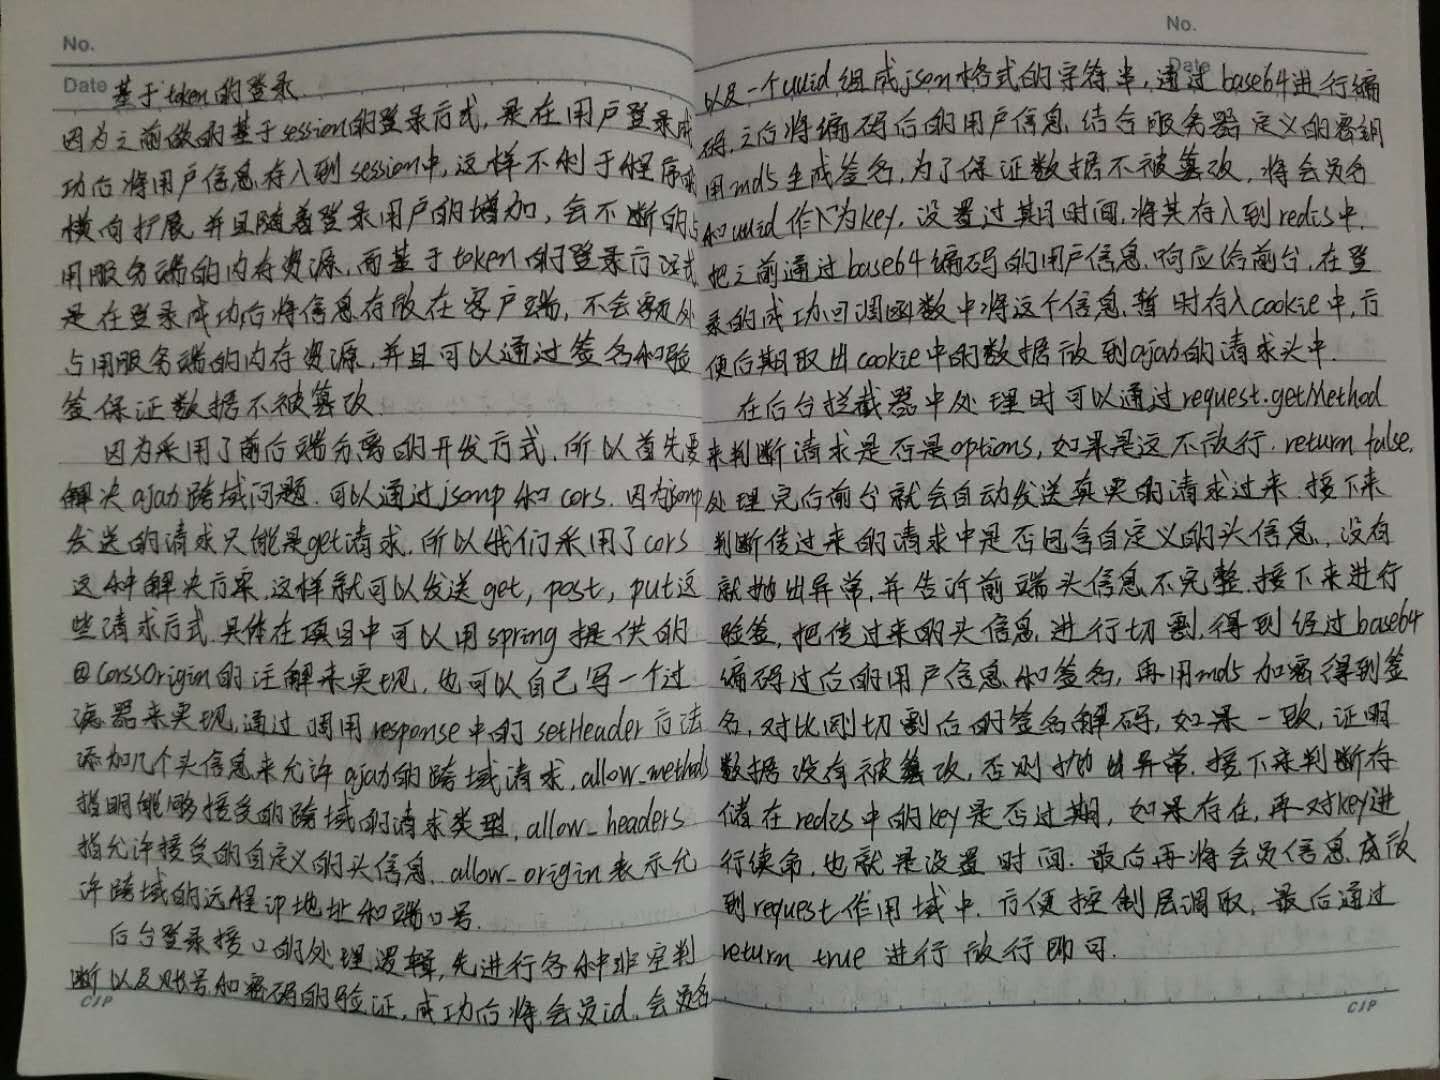 No.
Date 基于token的登录
因为之前做的基于session的登录方式,是在用户登录成
功后将用户信息存入到session中,这样不利于程序的
横向扩展,并且随着登录用户的增加,会不断的占
用服务端的内存资源,而基于token的登录方式
是在登录成功后将信息存放在客户端,不会额外
占用服务端的内存资源,并且可以通过签名和验
签保证数据不被篡改.
因为采用了前后端分离的开发方式,所以首先要
解决ajax跨域问题.可以通过jsonp和cors.因为jsonp
发送的请求只能是get请求,所以我们采用了cors
这种解决方案,这样就可以发送get,post,put这
些请求方式.具体在项目中可以用spring提供的
@CorssOrigin的注解来实现,也可以自己写一个过
滤器来实现,通过调用response中的setHeader方法
添加几个头信息来允许ajax的跨域请求,allow_methods
指明能够接受的跨域的请求类型,allow_headers
指允许接受的自定义的头信息,allow_origin表示允
许跨域的远程ip地址和端口号.
后台登录接口的处理逻辑,先进行各种非空判
断以及账号和密码的验证,成功后将会员id,会员名
CJP
No.
Date
以及一个uuid组成json格式的字符串,通过base64进行编
码,之后将编码后的用户信息,结合服务器定义的密钥
用md5生成签名,为了保证数据不被篡改,将会员名
和uuid作为key,设置过期时间,将其存入到redis中.
把之前通过base64编码的用户信息,响应给前台,在登
录的成功回调函数中将这个信息,暂时存入cookie中,方
便后期取出cookie中的数据放到ajax的请求头中.
在后台拦截器中处理时可以通过request.getMethod
来判断请求是否是options,如果是这不放行.return false,
处理完后前台就会自动发送真实的请求过来.接下来
判断传过来的请求中是否包含自定义的头信息,没有
就抛出异常,并告诉前端头信息不完整.接下来进行
验签,把传过来的头信息,进行切割,得到经过base64
编码过后的用户信息和签名,再用md5加密得到签
名,对比刚切割后的签名解码,如果一致,证明
数据没有被篡改,否则抛出异常.接下来判断存
储在redis中的key是否过期,如果存在,再对key进
行续命,也就是设置时间.最后再将会员信息存放
到request作用域中,方便控制层调取,最后通过
return true进行放行即可.
CJP